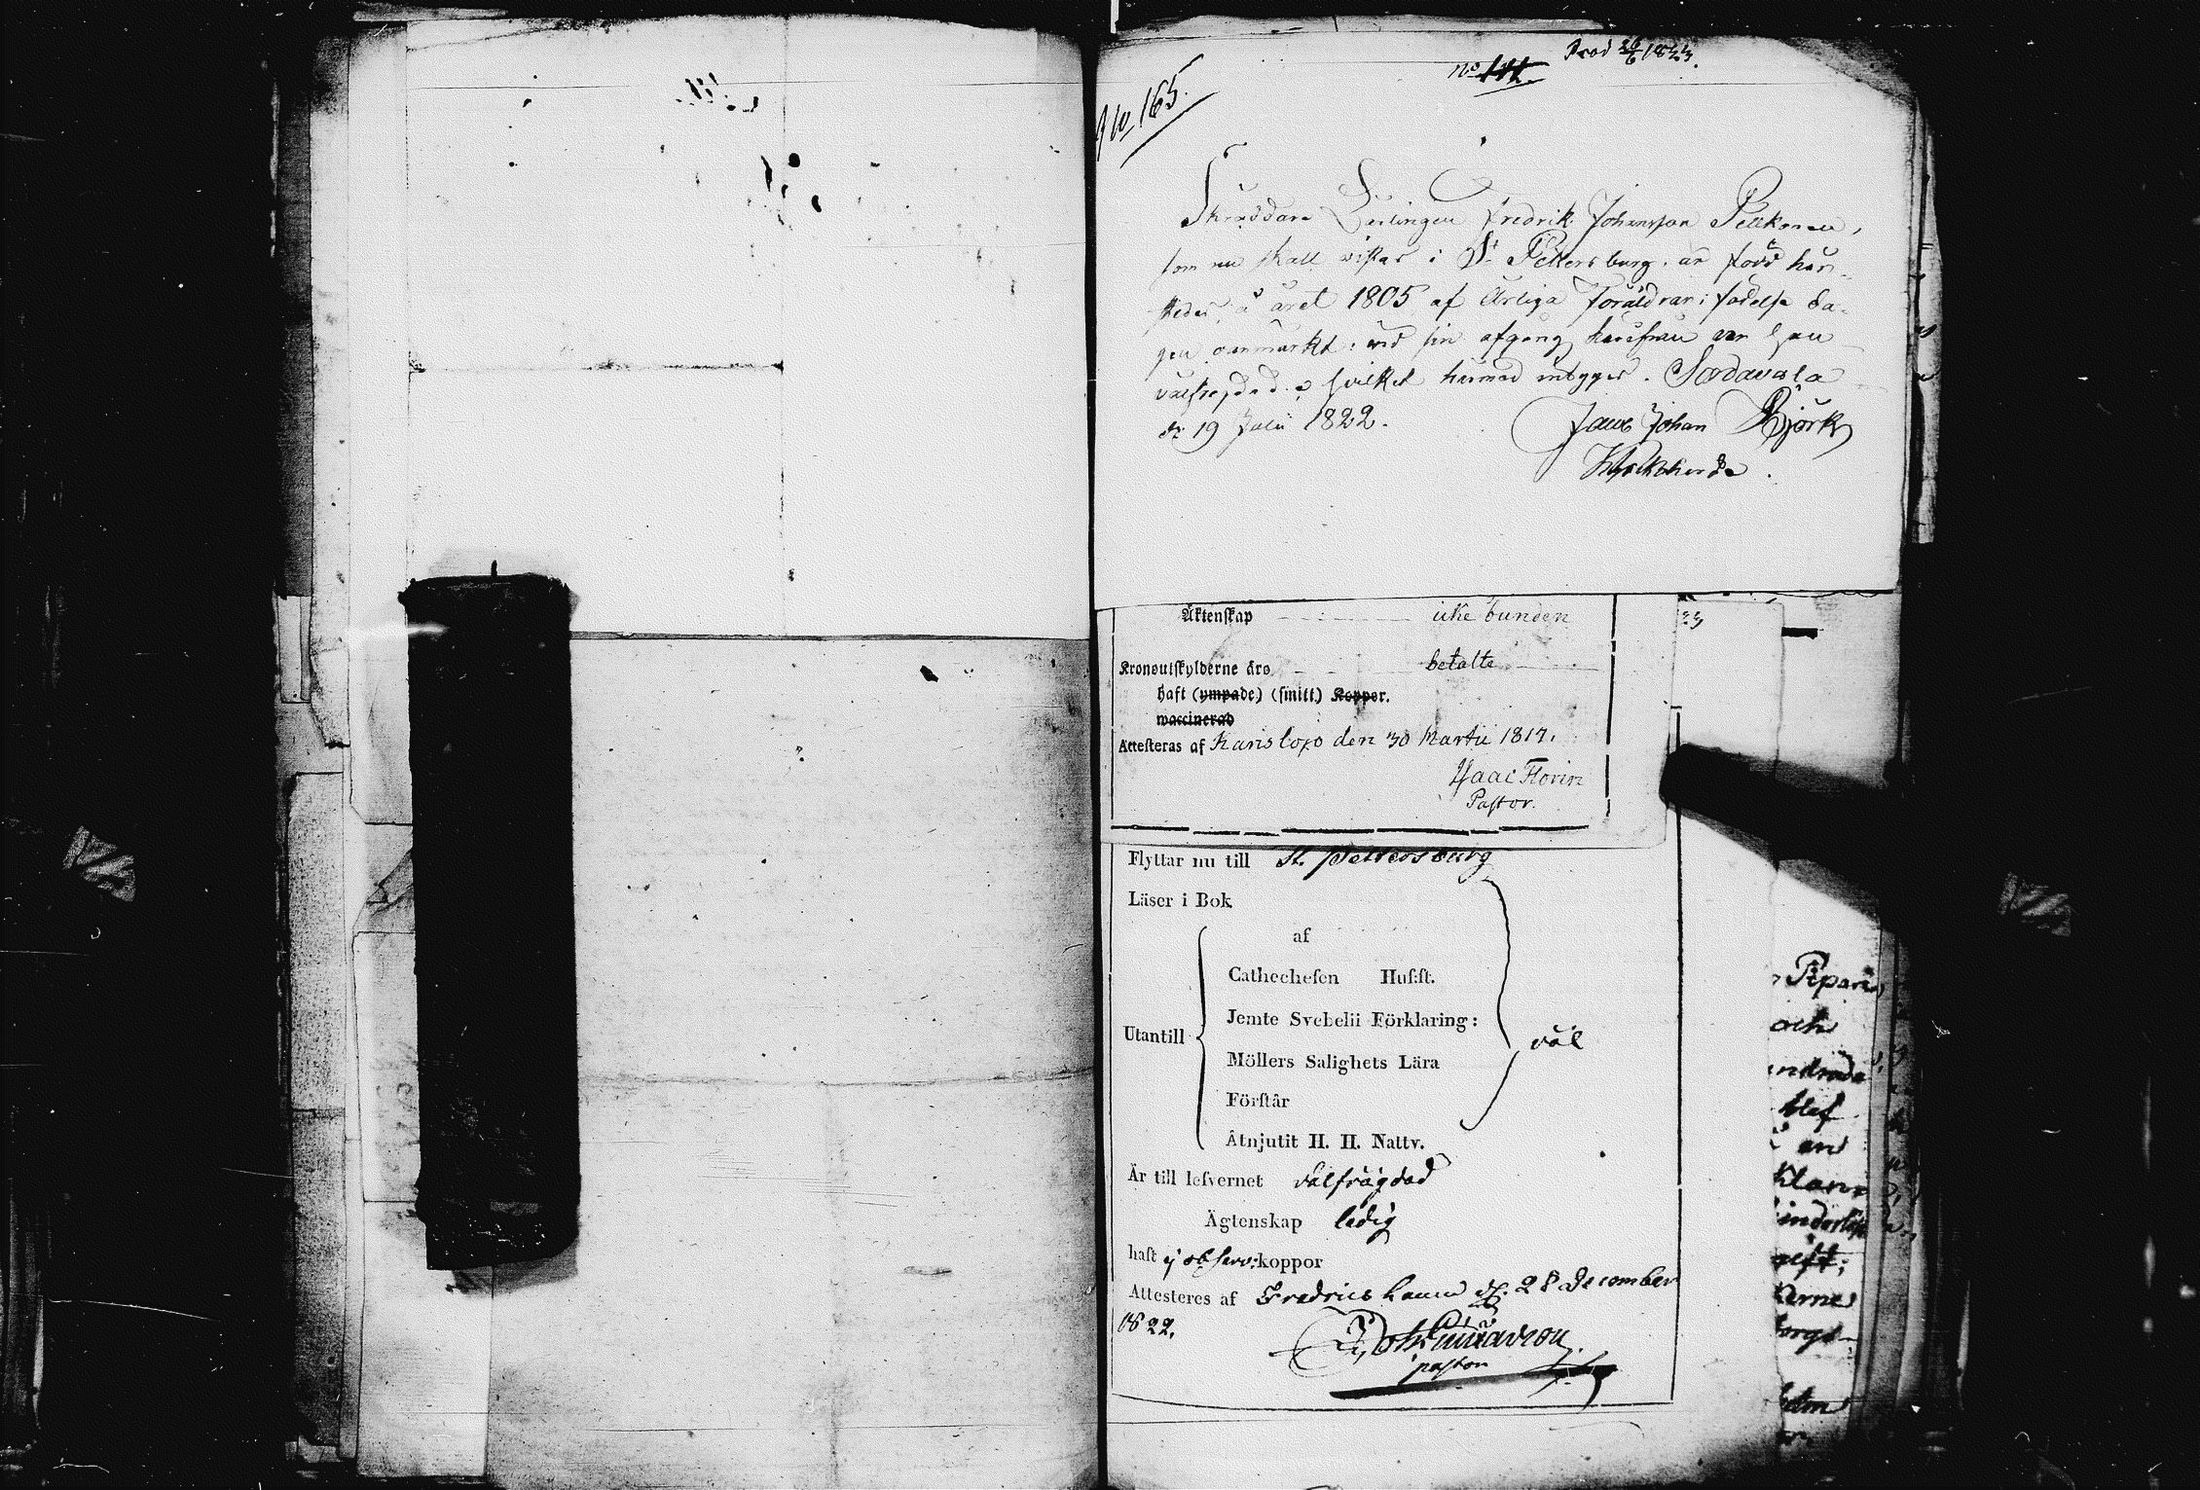 No 165.
No 141. Prod 26/6 1823.
Skräddare Lärlingen Fredrik Johansson Pelkonen,
som nu skall vistas i St. Pettersburg, är född här-
städes, å året 1805 af Ärliga Föräldrar; födelse da-
gen oanmärkt; vid sin afgång härifrån var han
välfrejdad, hvilket härmed intygges. Sordavala
d: 19 Julii 1822.
Jaco Johan Björk
Kyrkoherde.
Äktenskap icke bunden
Kronoutskylderne äro betalte
haft (ympade,) (smitt.) Koppor.
waccinerad
Attesteras af Karislojo den 30 Martii 1817.
Isaac Florin
Pastor.
Flyttar nu till St. Pettersburg
Läser i Bok
af
Cathechesen Hus:st.
Jemte Svebelii Förklaring:
Utantill väl
Möllers Salighets Lära
Förstår
Åtnjutit H. H. Nattv.
Är till lefvernet välfrägdad
Ägtenskap ledig
haft ej observ: koppor
Attesteres af Fredrics hamn d. 28 December
1822.
pastor
Pipari
och
andrada
blef
an
Klara
gift;